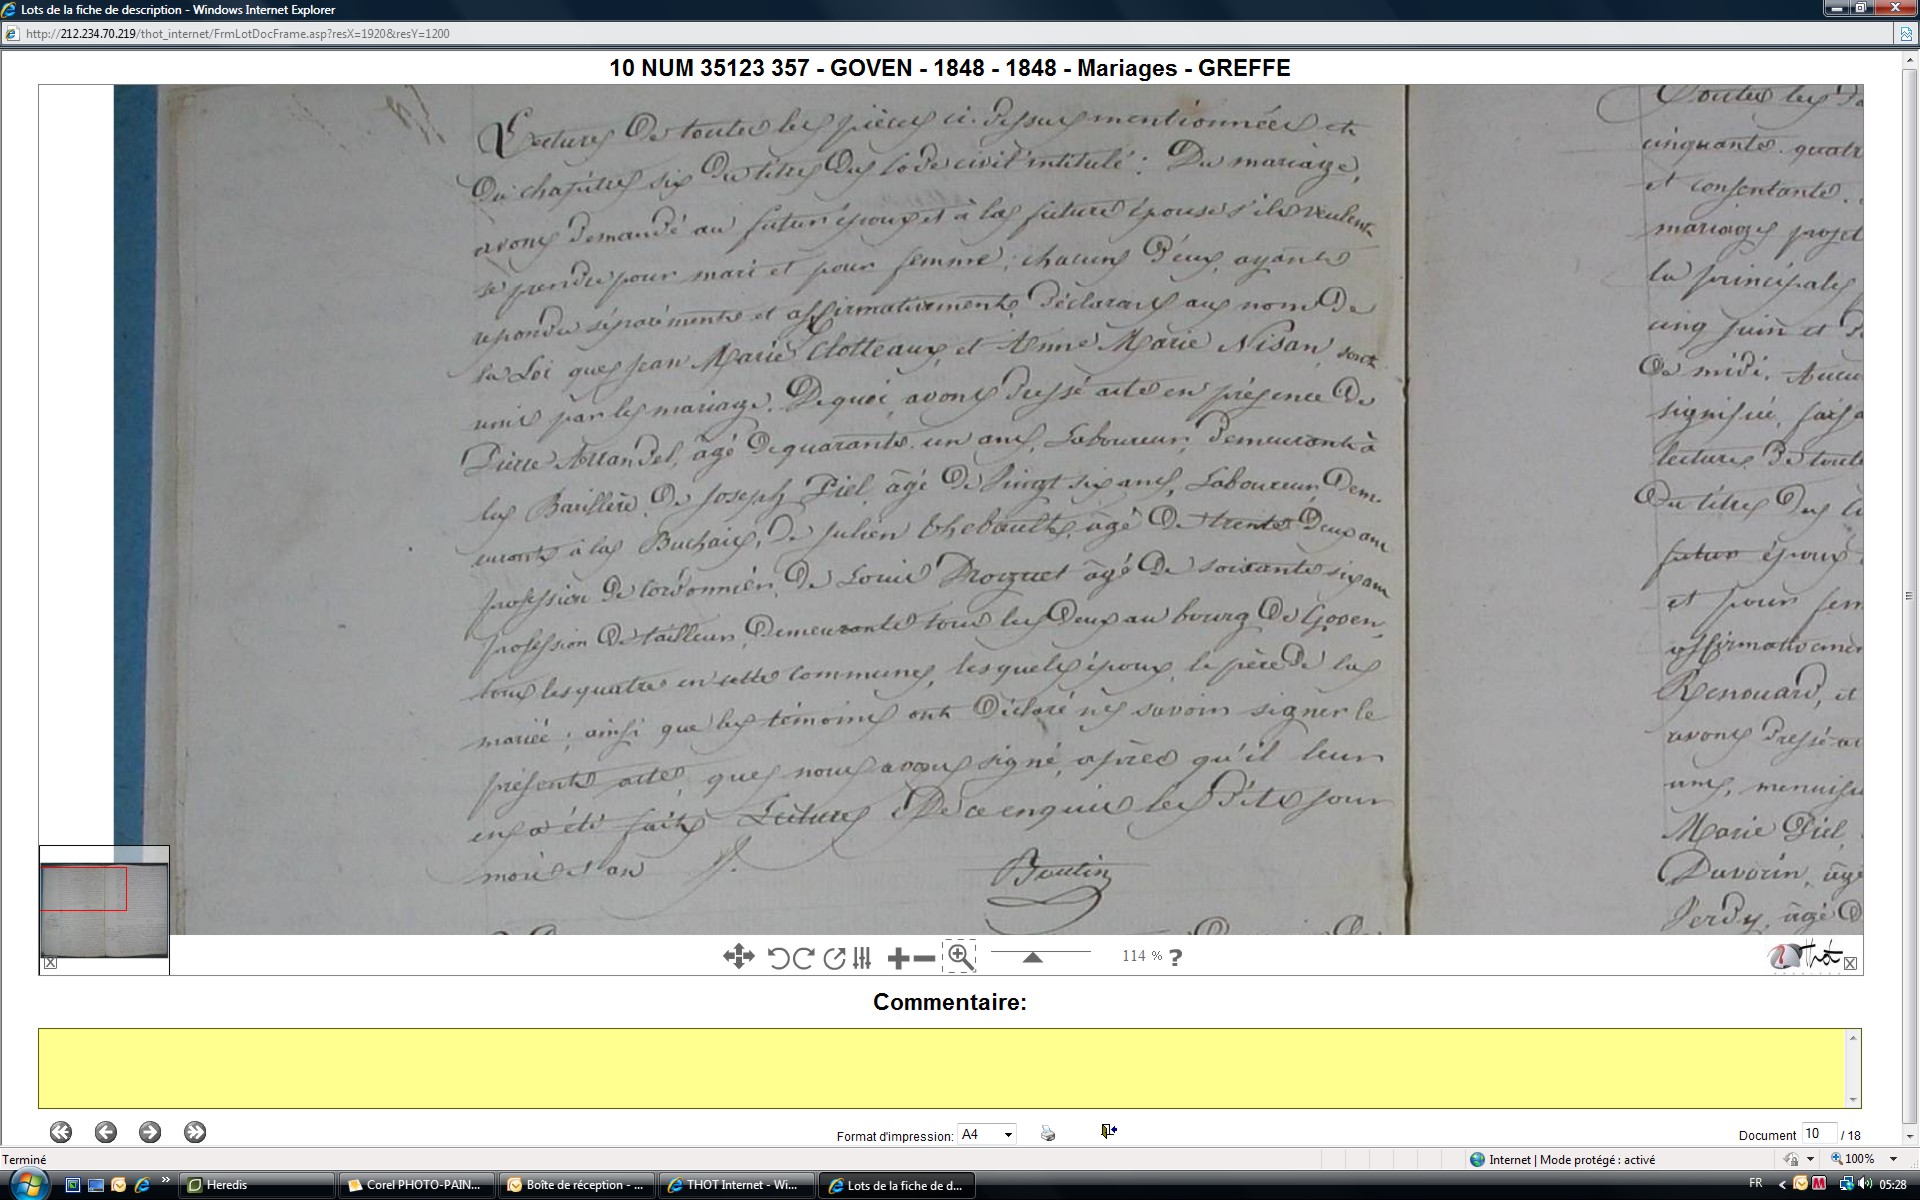 Lots de la fiche de description - Windows Internet Explorer
http://212.234.70.219/thot_internet/FrmLotDocFrame.asp?resX=1920&resY=1200
10 NUM 35123 357 - GOVEN - 1848 - 1848 - Mariages - GREFFE
Lecture de toutes les pièces ci-dessus mentionnées et
du chapitre six du titre du code civil intitulé : Du mariage,
avons demandé au futur époux et à la future épouse s'ils veulent
se prendre pour mari et pour femme ; chacun d'eux ayant
repondu séparément et affirmativement, déclarons au nom de
la Loi que Jean Marie Clotteaux, et Anne Marie Nisan, sont
unis par le mariage. De quoi, avons dressé acte en présence de
Pierre , âgé de quarante un ans, Laboureur, demeurant à
la , de Joseph Piel, âgé de vingt six ans, Laboureur, dem-
eurant à la , de Julien Thebault, âgé de trente deux ans
profession de cordonnier, de Louis , âgé de soixante six ans
profession de tailleur, demeurant tous les deux au bourg de Goven,
tous les quatre en cette commune, lesquels époux, le père de la
mariée, ainsi que les témoins ont déclaré ne savoir signer le
présent acte, que nous avons signé, après qu'il leur
en a été fait Lecture. De ce enquis les dits jour
mois et an
Boutin
Toutes les
cinquante quatr
et consentante.
mariage projet
la principale
cinq juin et
de midi. Aucu
signifiée, fais
lecture de toute
du titre du
futur époux
et pour fem
affirmativemen
Renouard, et
avons dressé
ans, menuisi
Marie Piel
Davoin, âgé
Verdy, âgé d
114 % ?
Thot
Commentaire:
Format d'impression: A4
Document 10 / 18
Terminé
Internet | Mode protégé : activé
100%
Heredis
Corel PHOTO-PAIN...
Boîte de réception - ...
THOT Internet - Wi...
Lots de la fiche de d...
FR
05:28